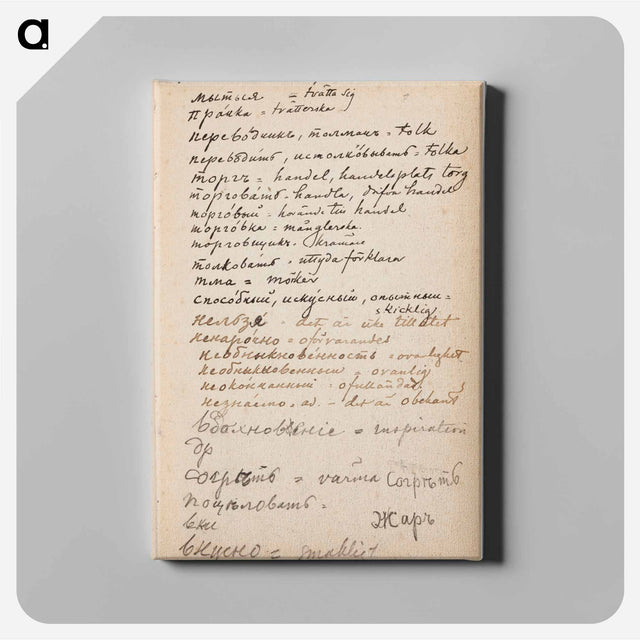 a.
мыться = tvätta sig
прачка = tvätterska
переводчикъ, толмачъ = tolk
переводить, истолковывать = tolka
торгъ = handel, handelsplats torg
торговать - handla, drifva handel
торговый = hörande till handel
торговка = månglerska
торговщикъ. Krämare
толковать. uttyda förklara
тма = mörker
способный, искусный, опытный =
skicklig
нельзя - det är icke tillåtet
ненарочно = oförvarandes
необыкновенность = ovanlighet
необыкновенный = ovanlig
неоконченный = ofulländad
незнаемо, ad. - det är obekant
вдохновенiе = inspiration
др
согрѣть = värma согрѣть
поцѣловать =
вки
Жаръ
вкусно = smakligt